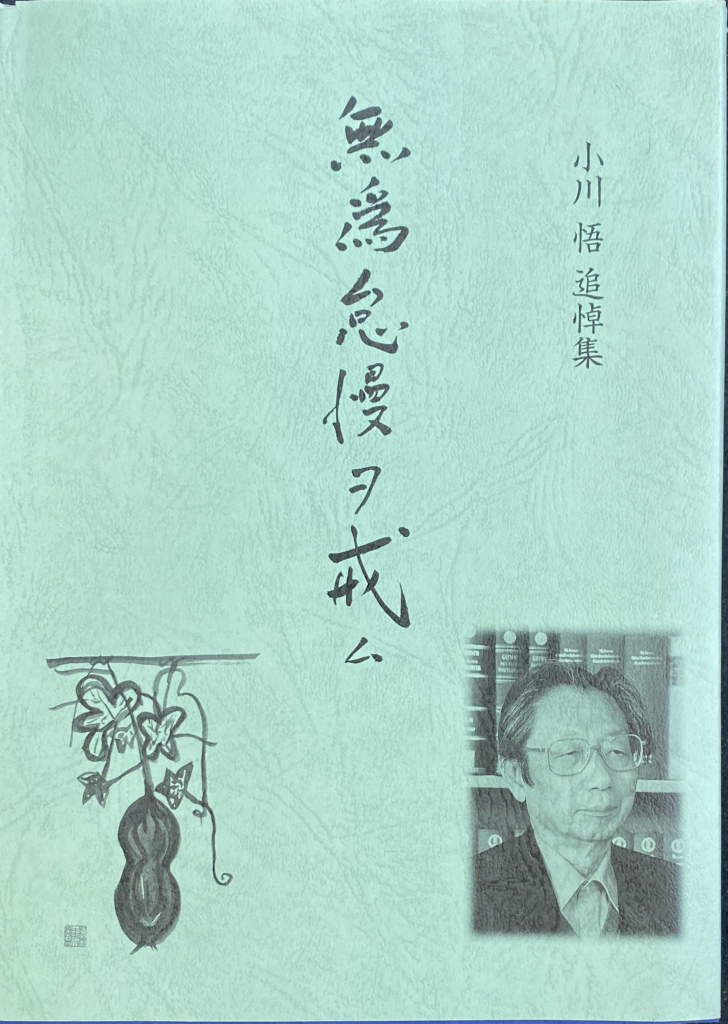 小川 悟 追悼集
無爲怠慢ヲ戒ム